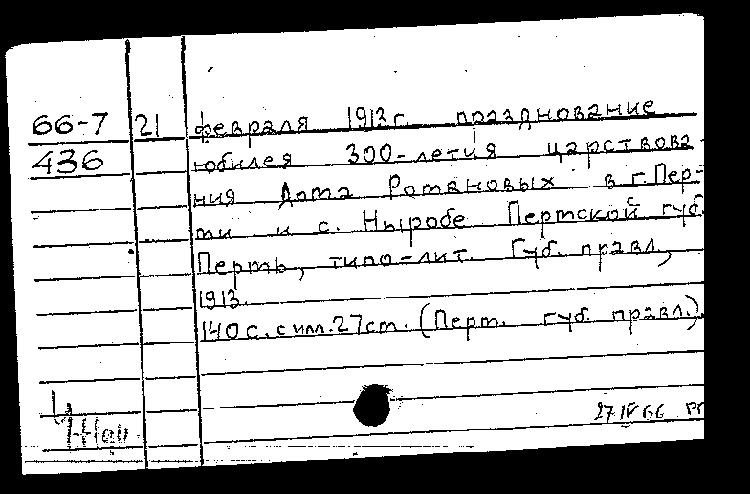 66-7 21 февраля 1913 г. празднование
436 юбилея 300-летия царствова-
ния Дома Романовых в г. Пер-
ми и с. Ныробе Пермской губ.
Пермь, типо-лит. Губ. правл.,
1913.
140 с. с илл. 27 см. (Перм. губ. правл.).
27 IV 66